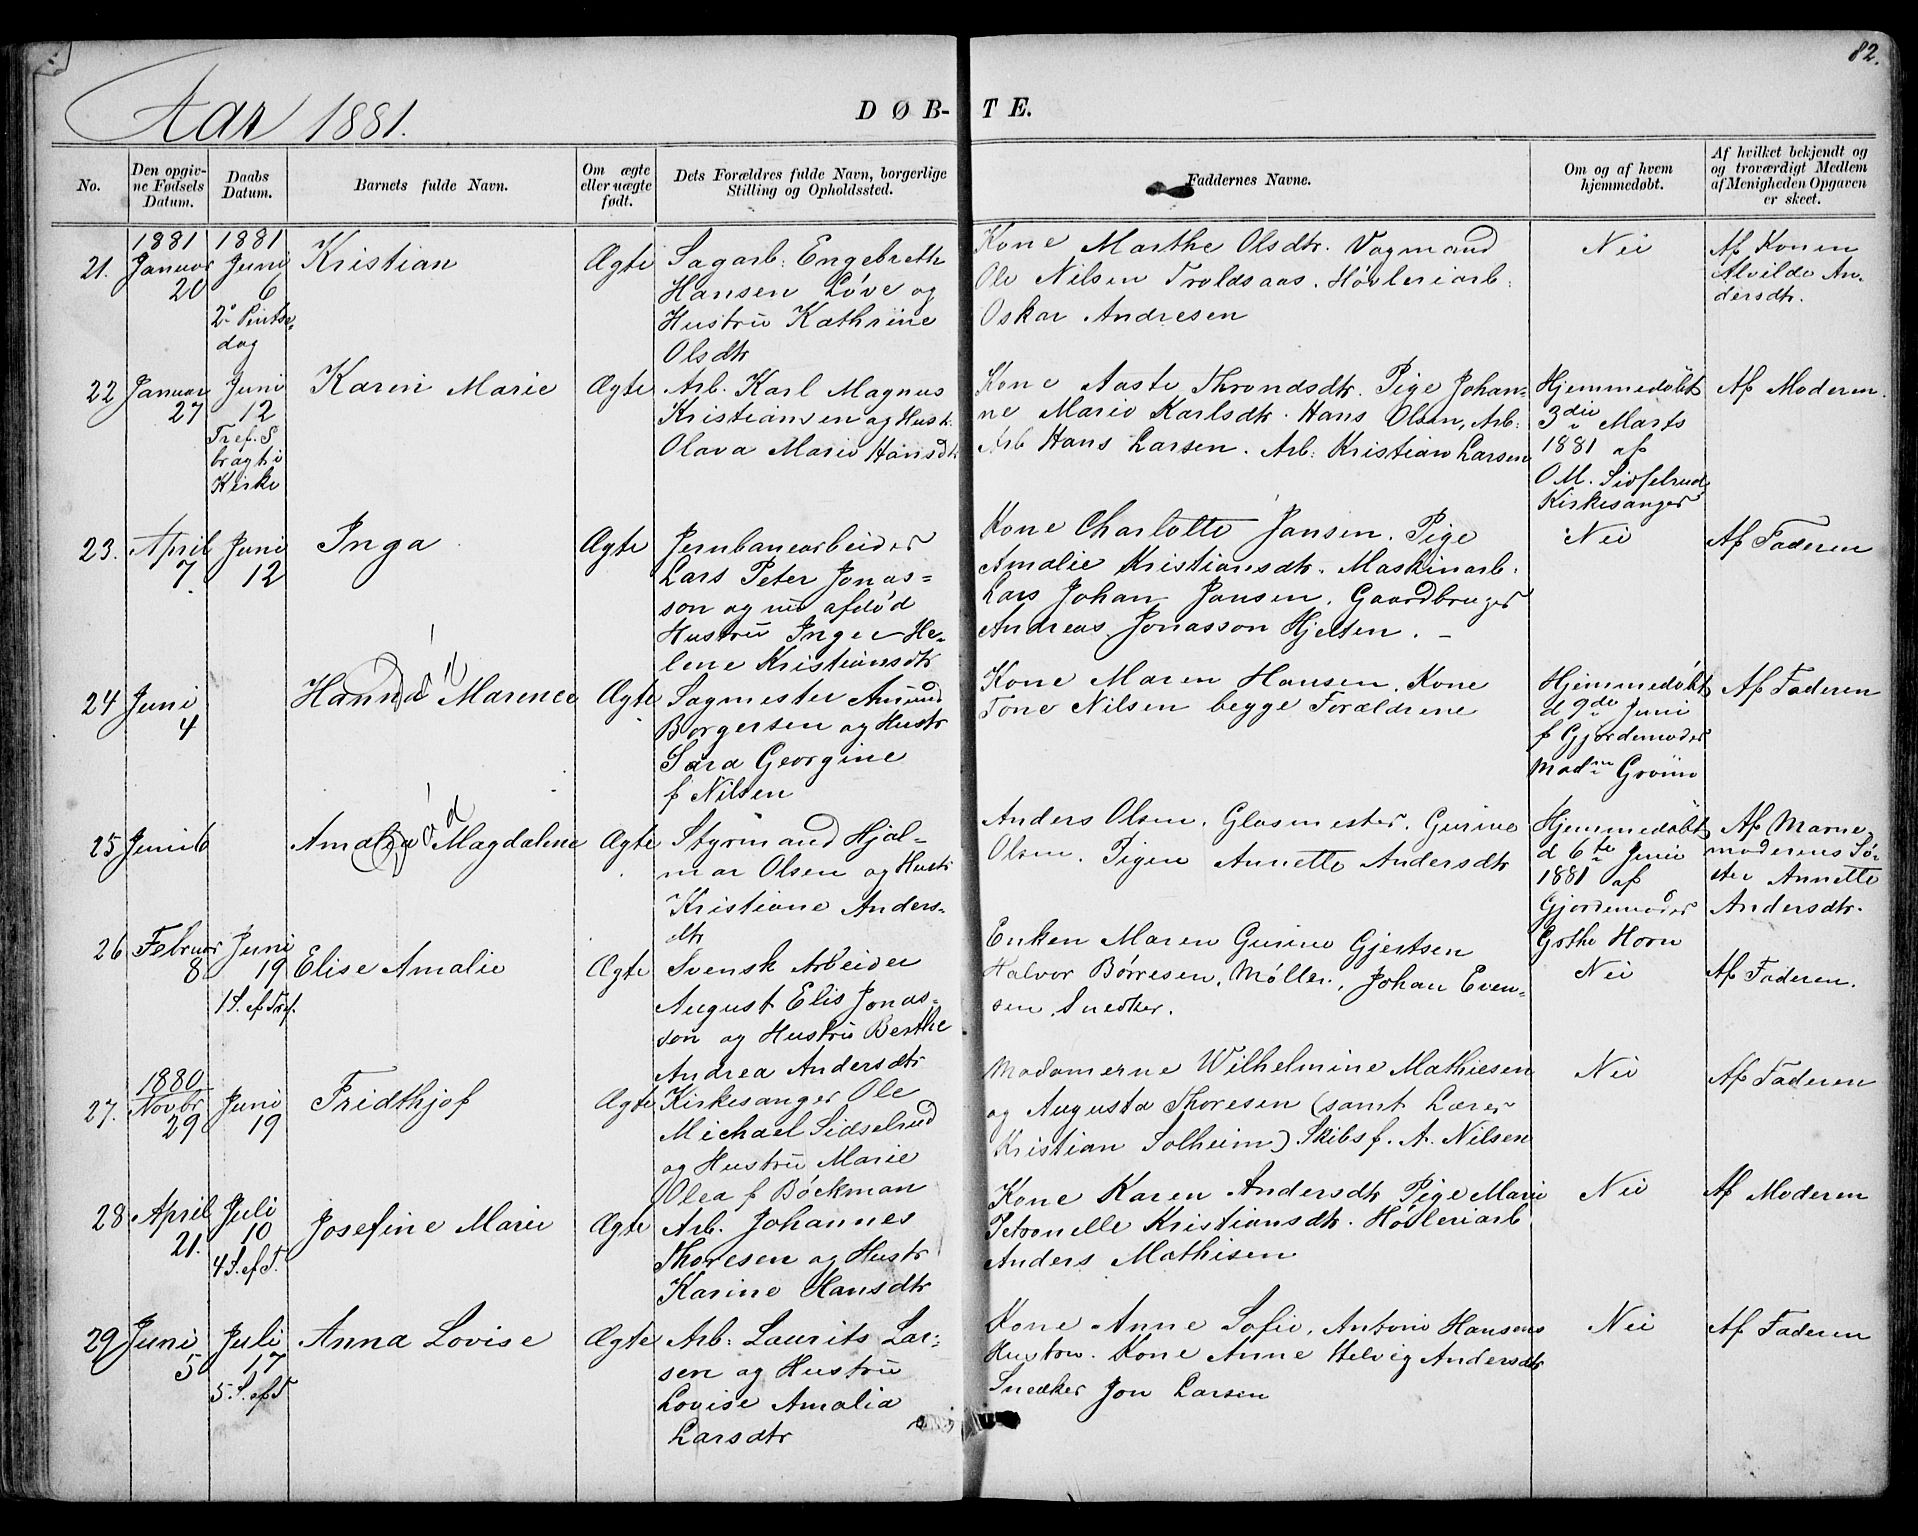 82.
Aar 1881.
DØB-TE.
No.
Den opgiv-
ne Fødsels
Datum.
Daabs
Datum.
Barnets fulde Navn.
Om ægte
eller uægte
født.
Dets Forældres fulde Navn, borgerlige
Stilling og Opholdssted.
Faddernes Navne.
Om og af hvem
hjemmedøbt.
Af hvilket bekjendt og
og troværdigt Medlem
af Menigheden Opgaven
er skeet.
21.
1881
Januar
20
1881
Juni
6
2. Pintse-
dag
Kristian
Ægte
Sagarb. Engebreth
Hansen Løve og
Hustru Kathrine
Olsdtr
Kone Marthe Olsdtr. Vogmand
Ole Nilsen Troldsaas. Høvleriarb.
Oskar Andresen
Nei
Af Konen
Alvilde An-
dersdtr.
22
Januar
27
Juni
12
Tref. S
bragt i
Kirke
Karen Marie
Ægte
Arb. Karl Magnus
Kristiansen og Hustr.
Olava Marie Hansdtr
Kone Aaste Throndsdtr. Pige Johan-
ne Marie Karlsdtr. Hans Olsen, Arb.
Arb Hans Larsen. Arb. Kristian Larsen
Hjemmedøbt
3die Marts
1881 af
O M. Sidselrud
Kirkesanger
Af Moderen.
23.
April
7.
Juni
12
Inga
Ægte
Jernbanearbeider
Lars Peter Jonas-
son og nu afdød
Hustru Inger He-
lene Kristiansdtr
Kone Charlotte Jansen. Pige
Amalie Kristiansdtr. Maskinarb.
Lars Johan Jansen. Gaardbruger
Andreas Jonasson Hjelten. -
Nei
Af Faderen
24
Juni
4
Hanna Marence
død
Ægte
Sagmester Amund
Borgersen og Hustr
Sara Georgine
f Nilsen
Kone Maren Hansen. Kone
Tone Nilsen begge Forældrene
Hjemmedøbt
d 9de Juni
f Gjordemoder
Madm
Af Faderen
25
Juni 6
Amalia Magdalene
død
Ægte
Styrmand Hjal-
mar Olsen og Hustr
Kristiane Anders-
dtr
Anders Olsen, Glasmester. Gurine
Olsen. Pigen Annette Andersdtr
Hjemmedøbt
d 6te Juni
1881 af
Gjordemoder
Gothe Horn
Af Barne-
moderens Sø-
ster Annette
Andersdtr.
26
Februar
8
Juni
19
1 S. ef Tref.
Elise Amalie
Ægte
Svensk Arbeider
August Elis Jonas-
son og Hustru Berthe
Andrea Andersdtr
Enken Maren Gurine Gjertsen
Halvor Børresen, Møller, Johan Even-
sen, Snedker.
Nei
Af Faderen.
27.
1880
Novbr
29
Juni
19
Fridthjof
Ægte
Kirkesanger Ole
Michael Sidselrud
og Hustru Marie
Olea f Böckman
Madamerne Wilhelmine Mathiesen
og Augusta Thoresen (samt Lærer
Kristian Solheim) Skibsf. A. Nilsen
Nei
Af Faderen
28
April
21.
Juli
10
4 S. ef T.
Josefine Marie
Ægte
Arb. Johannes
Thoresen og Hustr
Karine Hansdtr
Kone Karen Andersdtr Pige Marie
Petronelle Kristiansdtr. Høvleriarb
Anders Mathisen
Nei
Af Moderen
29
Juni
5
Juli
17
5 S. ef T
Anna Lovise
Ægte
Arb. Laurits Lar-
sen og Hustru
Lovise Amalia
Larsdtr
Kone Anne Sofie, Antoni Hansens
Hustru. Kone Anne Helvig Andersdtr
Snedker Jon Larsen
Nei
Af Faderen